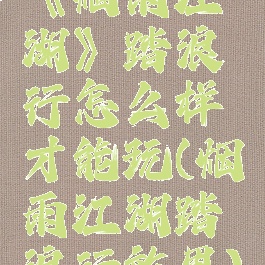 《烟雨江
湖》踏浪
行怎么样
才能玩(烟
雨江湖踏
浪行效果)